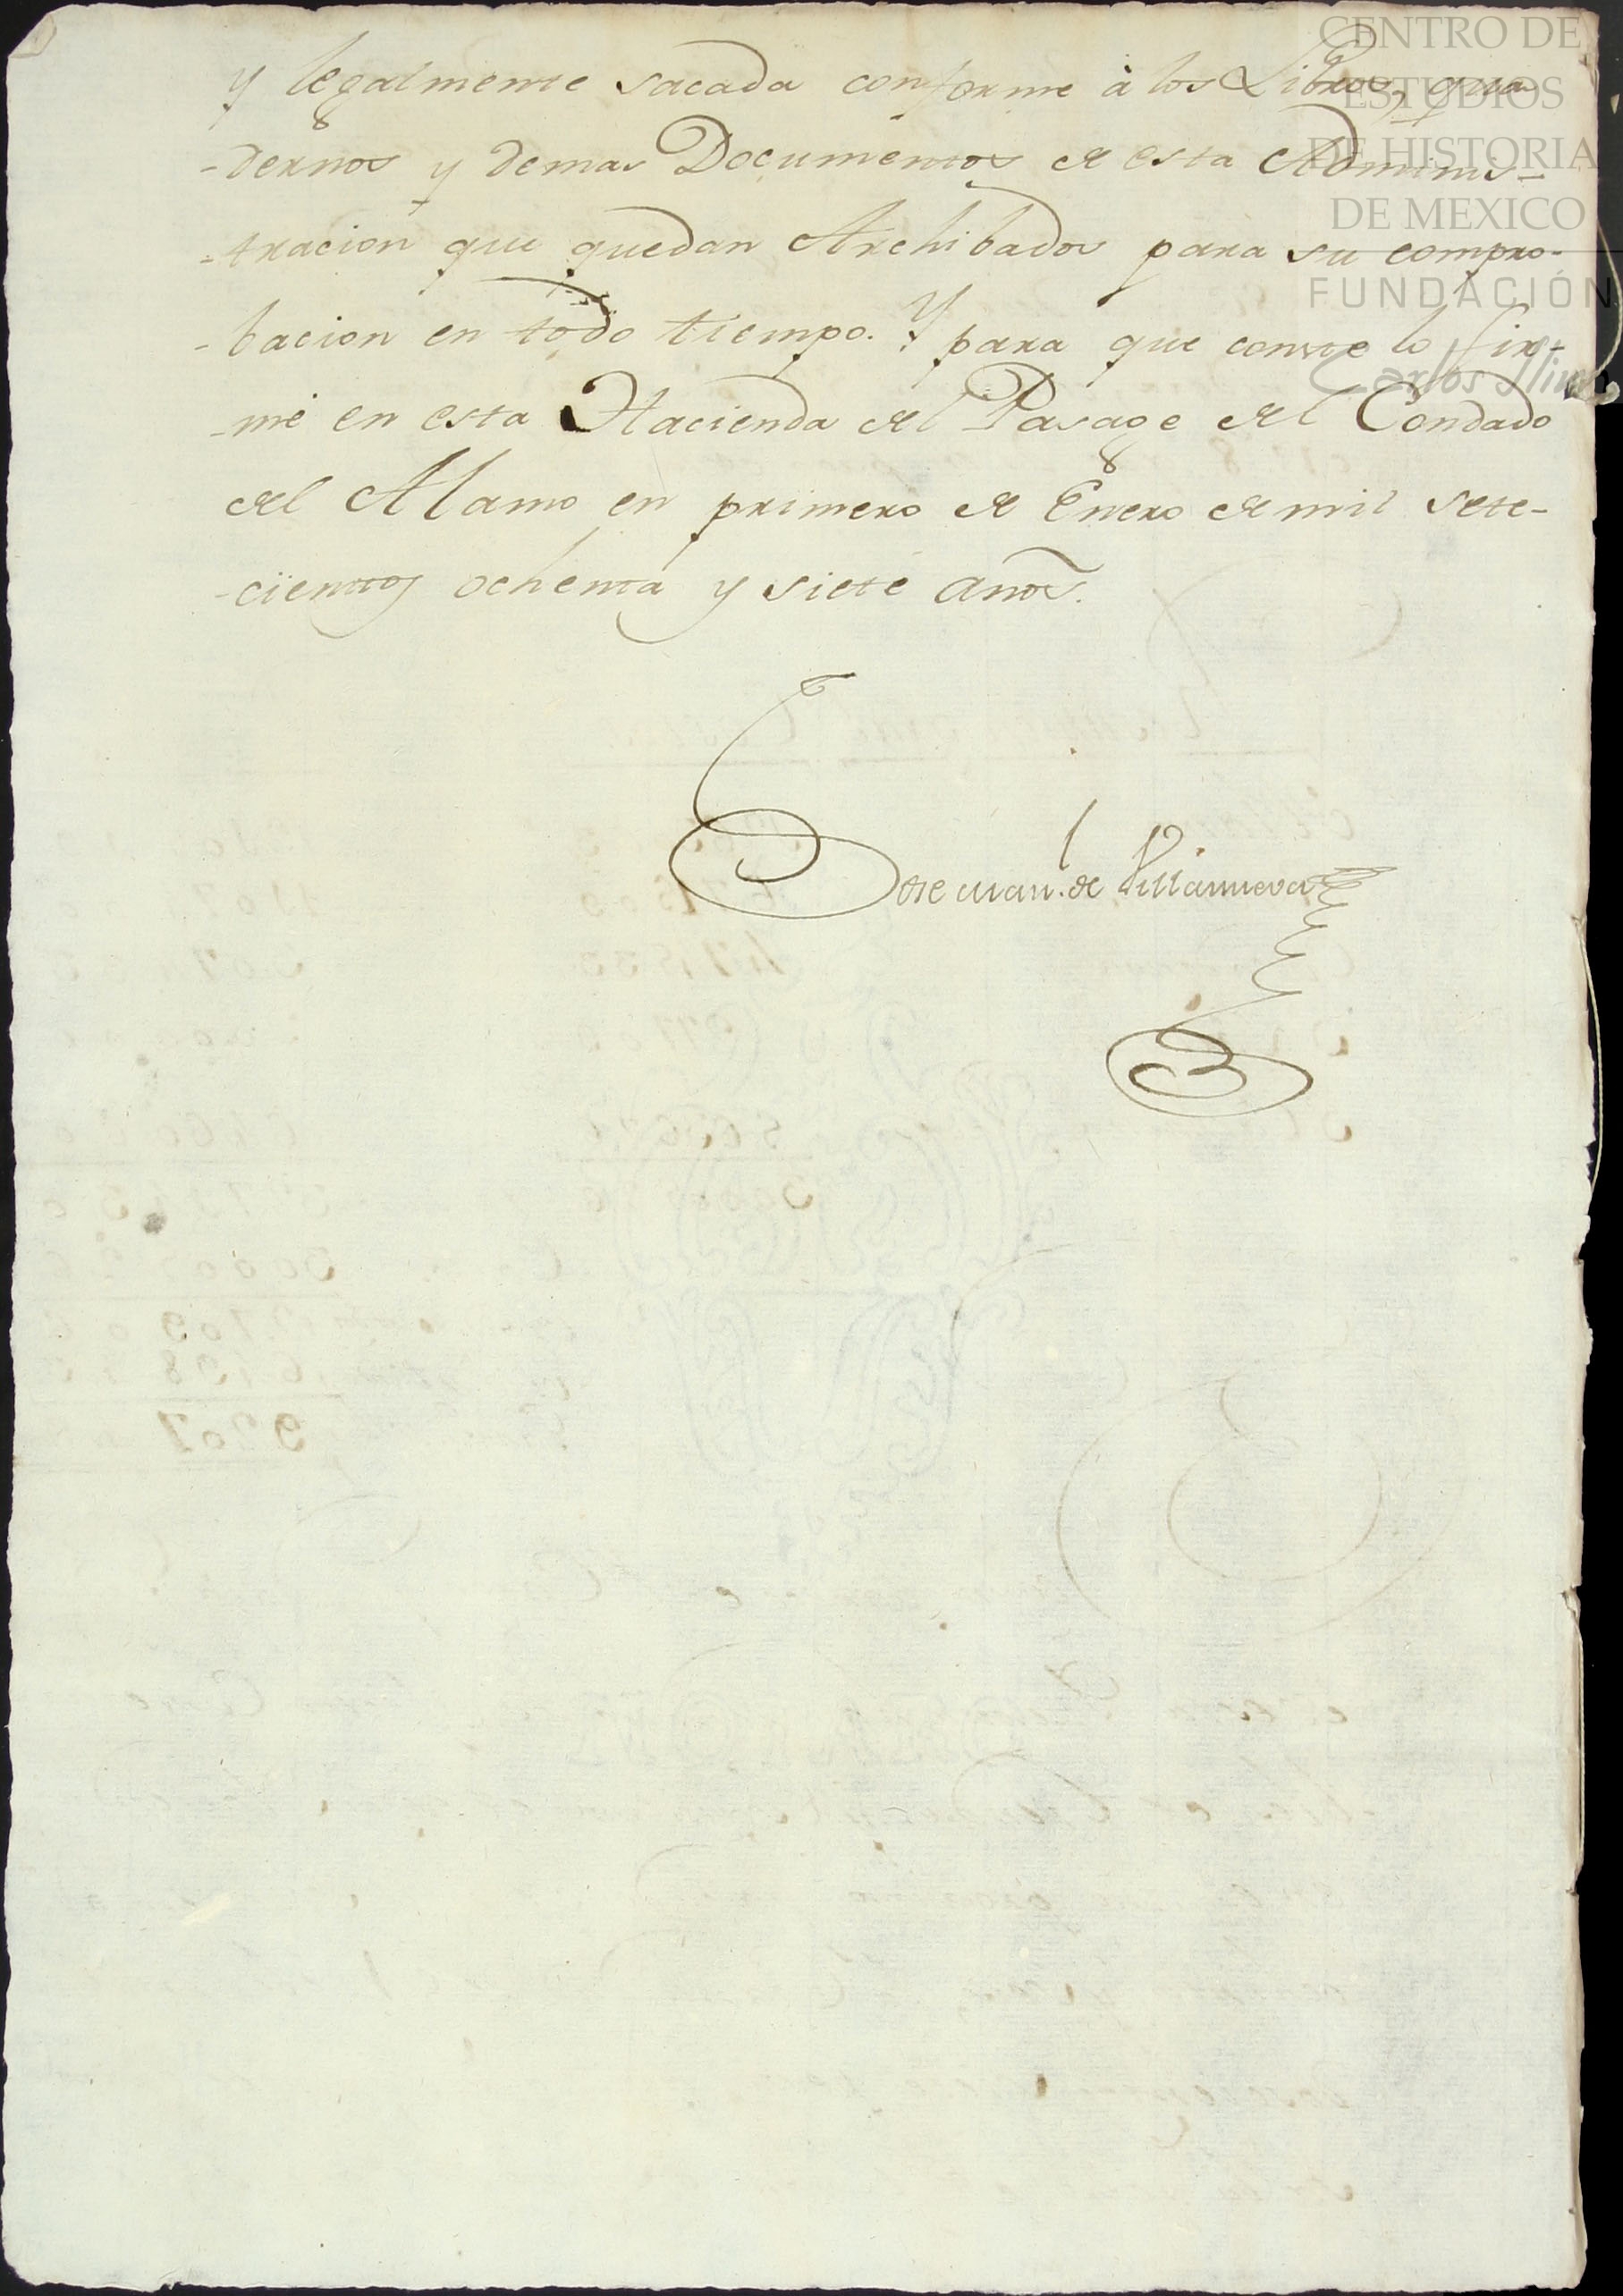 y legalmente sacada conforme à los Libros, qua
-dernos y demas Documentos de esta Adminis-
-tracion que quedan Archibados para su compro-
-bacion en todo tiempo. Y para que conste lo fir-
-mé en esta Hacienda del Pasage del Condado
del Alamo en primero de Enero de mil sete-
-cientos ochenta y siete años.
Jose Man.l de Villanueva
CENTRO DE
ESTUDIOS
DE HISTORIA
DE MEXICO
FUNDACIÓN
Carlos Slim